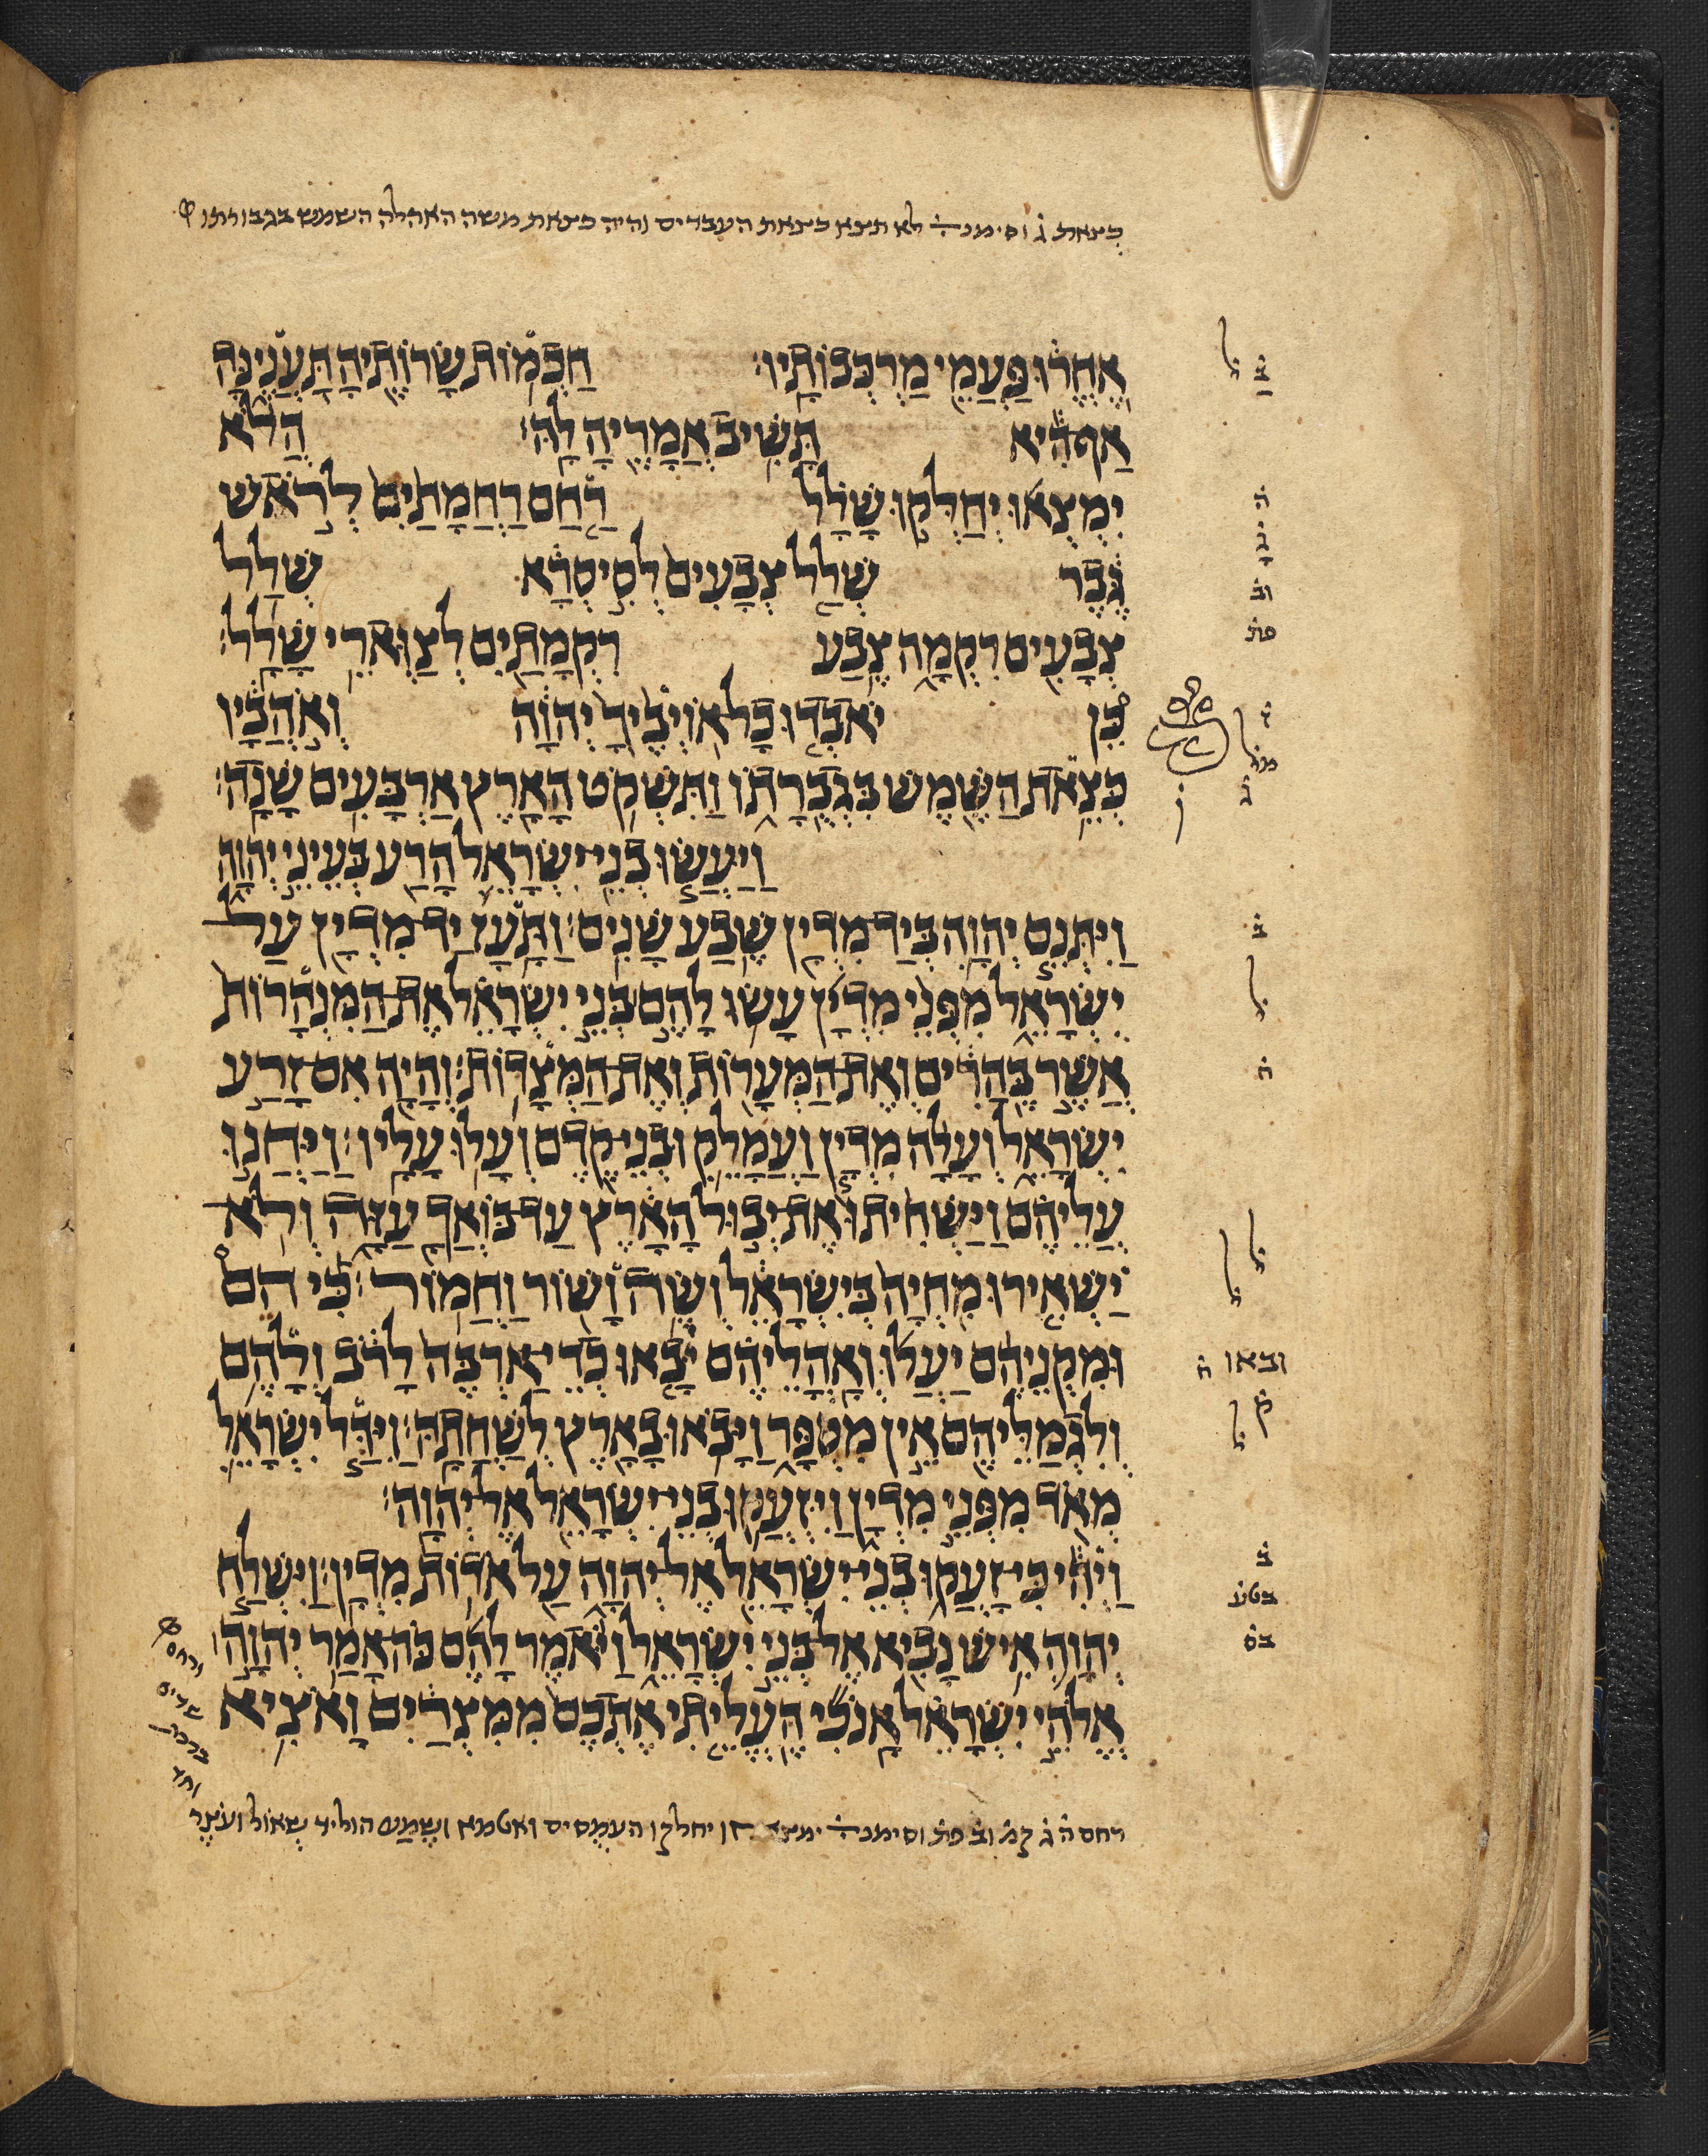 כצאת ג וסימנ לא תצא כצאת העבדים והיה כצאת משה האהלה השמש בגבורתו
אֶחֱרוּ פַּעֲמֵי מַרְכְּבוֹתָיו׃ חַכְמוֹת שָׂרוֹתֶיהָ תַּעֲנֶינָּה
אַף הִיא תָּשִׁיב אֲמָרֶיהָ לָהּ׃ הֲלֹא
יִמְצְאוּ יְחַלְּקוּ שָׁלָל רַחַם רַחֲמָתַיִם לְרֹאשׁ
גֶּבֶר שְׁלַל צְבָעִים לְסִיסְרָא שְׁלַל
צְבָעִים רִקְמָה צֶבַע רִקְמָתַיִם לְצַוְּארֵי שָׁלָל׃
כֵּן יֹאבְדוּ כָל אוֹיְבֶיךָ יְהוָה וְאֹהֲבָיו
כְּצֵאת הַשֶּׁמֶשׁ בִּגְבֻרָתוֹ וַתִּשְׁקֹט הָאָרֶץ אַרְבָּעִים שָׁנָה׃
וַיַּעֲשׂוּ בְנֵי יִשְׂרָאֵל הָרַע בְּעֵינֵי יְהוָה
וַיִּתְּנֵם יְהוָה בְּיַד מִדְיָן שֶׁבַע שָׁנִים׃ וַתָּעָז יַד מִדְיָן עַל
יִשְׂרָאֵל מִפְּנֵי מִדְיָן עָשׂוּ לָהֶם בְּנֵי יִשְׂרָאֵל אֶת הַמִּנְהָרוֹת
אֲשֶׁר בֶּהָרִים וְאֶת הַמְּעָרוֹת וְאֶת הַמְּצָדוֹת׃ וְהָיָה אִם זָרַע
יִשְׂרָאֵל וְעָלָה מִדְיָן וַעֲמָלֵק וּבְנֵי קֶדֶם וְעָלוּ עָלָיו׃ וַיַּחֲנוּ
עֲלֵיהֶם וַיַּשְׁחִיתוּ אֶת יְבוּל הָאָרֶץ עַד בּוֹאֲךָ עַזָּה וְלֹא
יַשְׁאִירוּ מִחְיָה בְּיִשְׂרָאֵל וְשֶׂה וָשׁוֹר וַחֲמוֹר׃ כִּי הֵם
וּמִקְנֵיהֶם יַעֲלוּ וְאָהֳלֵיהֶם יָבָאוּ כְדֵי אַרְבֶּה לָרֹב וְלָהֶם
וְלִגְמַלֵּיהֶם אֵין מִסְפָּר וַיָּבֹאוּ בָאָרֶץ לְשַׁחֲתָהּ׃ וַיִּדַּל יִשְׂרָאֵל
מְאֹד מִפְּנֵי מִדְיָן וַיִּזְעֲקוּ בְנֵי יִשְׂרָאֵל אֶל יְהוָה׃
וַיְהִי כִּי זָעֲקוּ בְנֵי יִשְׂרָאֵל אֶל יְהוָה עַל אֹדוֹת מִדְיָן׃ וַיִּשְׁלַח
יְהוָה אִישׁ נָבִיא אֶל בְּנֵי יִשְׂרָאֵל וַיֹּאמֶר לָהֶם כֹּה אָמַר יְהוָה
אֱלֹהֵי יִשְׂרָאֵל אָנֹכִי הֶעֱלֵיתִי אֶתְכֶם מִמִּצְרַיִם וָאֹצִיא
ב
ה
ג
וב
פת
ל
מל
ג
ב
ל
ח
ובאו ק
ק
ל
ב
בטע
בס
רחם ה ג קמ וב פת וסימנ ימצאו יחלקו העמסים ואטמא ושֶמַע הוליד שאול ועצר
ורחם